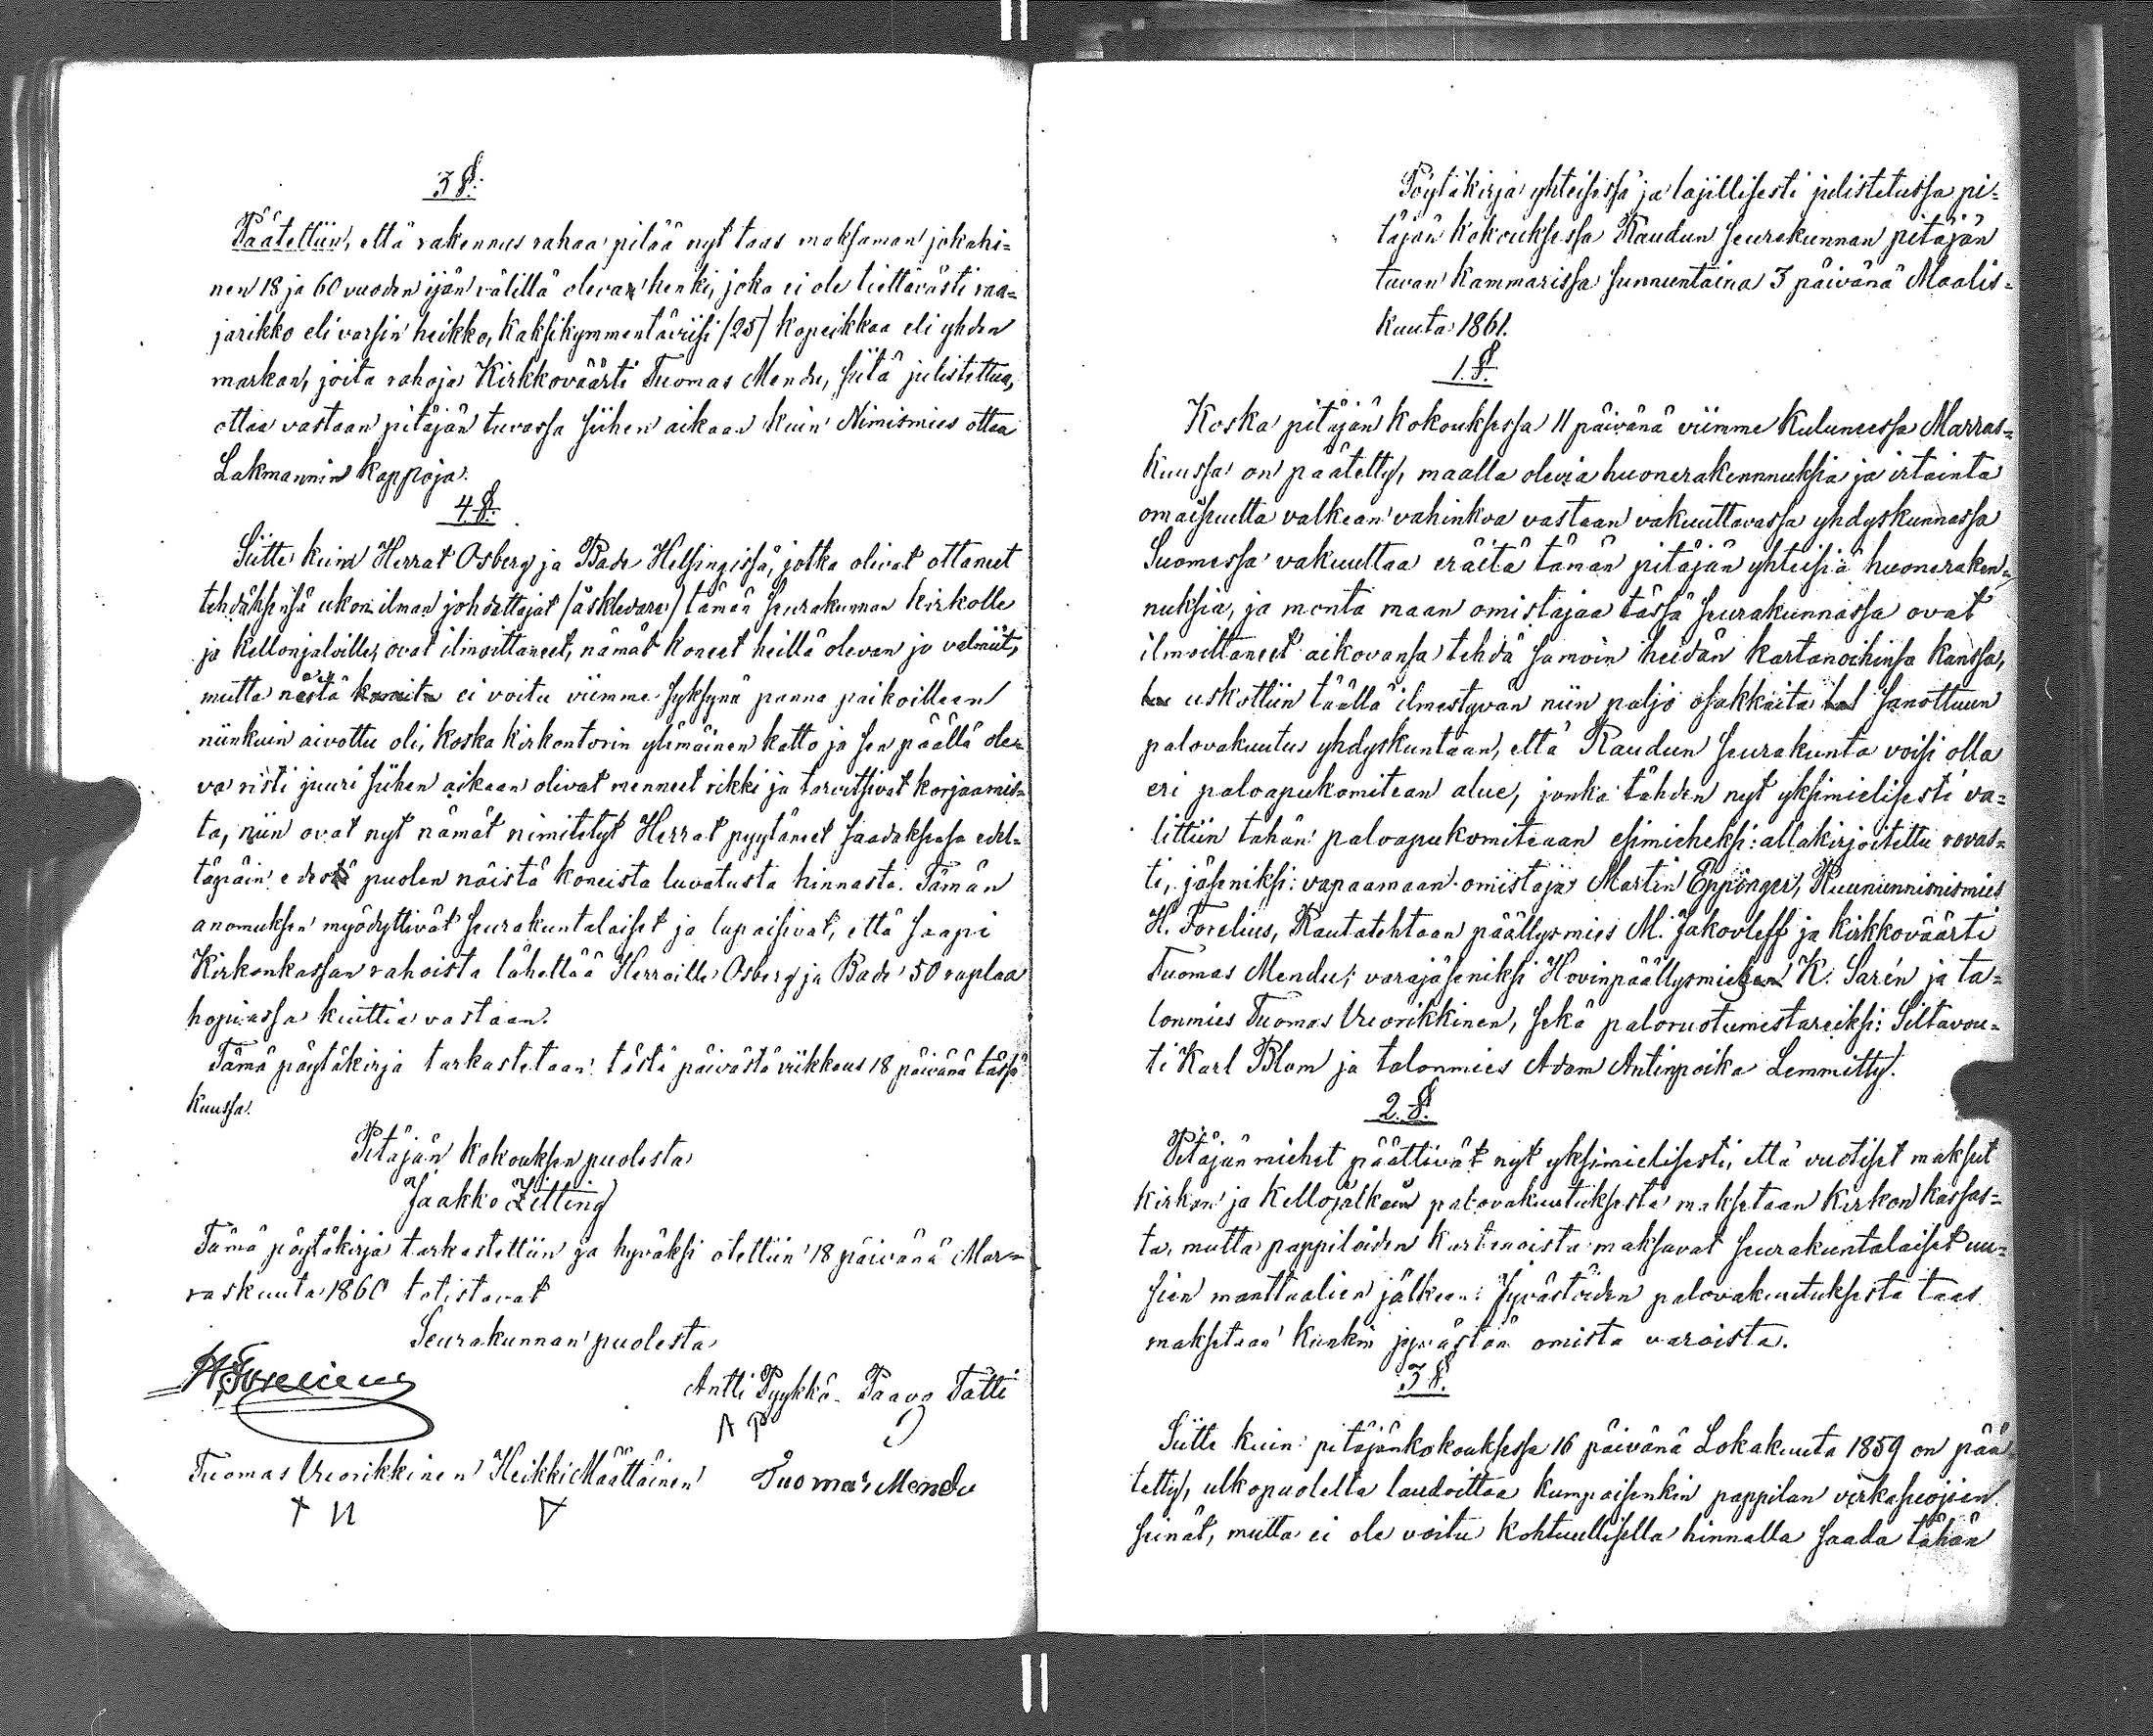 3 §.
Päätettiin, että rakennus rahaa pitää nyt taas maksaman jokahi=
nen 18 ja 60 vuoden ijän välillä olevan henki, joka ei ole tiettävästi raa=
jarikko eli varsin heikko, kaksikymmentäviisi /25/ kopeikkaa eli yhden
markan, joita rahoja Kirkkoväärti Tuomas Mendu, siitä julistettua,
ottaa vastaan pitäjän tuvassa siihen aikaan kuin Nimismies ottaa
Lakmannin kappoja.
4 §.
Siitte kuin Herrat Osberg ja Bade Helsingissä, jotka olivat ottaneet
tehdäksensä ukonilman johdattajat /åskledare/ tämän seurakunnan kirkolle
ja kellonjaloille, ovat ilmoittaneet, nämät koneet heillä olevan jo valmiit,
mutta näitä ei voitu viimme syksynä panna paikoilleen
niinkuin aivottu oli, koska kirkontornin ylimäinen katto ja sen päällä ole=
va risti juuri siihen aikaan olivat menneet rikki ja tarvitsivat korjaamis=
ta, niin ovat nyt nämät nimitetyt Herrat pyytäneet saadaksensa edel=
täpäin edes puolen näistä koneista luvatusta hinnasta. Tämän
anomuksen myödyttivät seurakuntalaiset ja lupaisivat, että saapi
Kirkonkassan rahoista lähettää Herroille Osberg ja Bade 50 ruplaa
hopiassa kuittia vastaan.
Tämä pöytäkirja tarkastetaan tästä päivästä viikkous 18 päivänä tässä
kuussa.
Pitäjän kokouksen puolesta
Jaakko Zitting
Tämä pöytäkirja tarkastettiin ja hyväksi otettiin 18 päivänä Mar=
raskuuta 1860 totistavat
Seurakunnan puolesta
H. Forelius
Antti Pyykkö. Paavo Tatti
A P
Tuomas Vuorikkinen Heikki Määttäinen Tuomas Mendu
Pöytäkirja yhteisessä ja lajillisesti julistetussa pi=
täjän kokouksessa Raudun seurakunnan pitäjän
tuvan kammarissa sunnuntaina 3 päivänä Maalis=
kuuta 1861.
1. §.
Koska pitäjän kokouksessa 11 päivänä viimme kuluneessa Marras=
kuussa on päätetty, maalla olevia huonerakennnuksia ja irtainta
omaisuutta valkean vahinkoa vastaan vakuuttavassa yhdyskunnassa
Suomessa vakuuttaa eräitä tämän pitäjän yhteisiä huoneraken=
nuksia, ja monta maan omistajaa tässä seurakunnassa ovat
ilmoittaneet aikovansa tehdä samoin heidän kartanoihinsa kanssa,
uskottiin täällä ilmestyvän niin paljo osakkaita sanottuun
palovakuutus yhdyskuntaan, että Raudun seurakunta voisi olla
eri paloapukomitean alue, jonka tähden nyt yksimielisesti va=
littiin tähän paloapukomiteaan esimieheksi: allakirjoitettu rovas=
ti, jäseniksi: vapaamaan omistaja Martin Eppinger, Ruununnimismies
H. Forelius, Rautatehtaan päällysmies M. Jakovleff ja kirkkoväärti
Tuomas Mendu; varajäseniksi Hovinpäällysmies K. Sarén ja ta=
lonmies Tuomas Vuorikkinen, sekä paloruotumestareiksi: Siltavou=
ti Karl Blom ja talonmies Adam Antinpoika Lemmitty.
2. §.
Pitäjänmiehet päättivät nyt yksimielisesti, että vuotiset maksut
kirkon ja kellojalkain palovakuutuksesta maksetaan kirkon kassas=
ta, mutta pappiloiden kartanoista maksavat seurakuntalaiset uu=
sien manttaalien jälkeen; Jyvästöiden palovakuutuksesta taas
maksetaan kunkin jyvästön omista varoista.
3 §.
Siitte kuin pitäjänkokouksessa 16 päivänä Lokakuuta 1859 on pää
tetty, ulkopuolelta laudoittaa kumpaisenkin pappilan virkahuojien
seinät, mutta ei ole voitu kohtuullisella hinnalla saada tähän